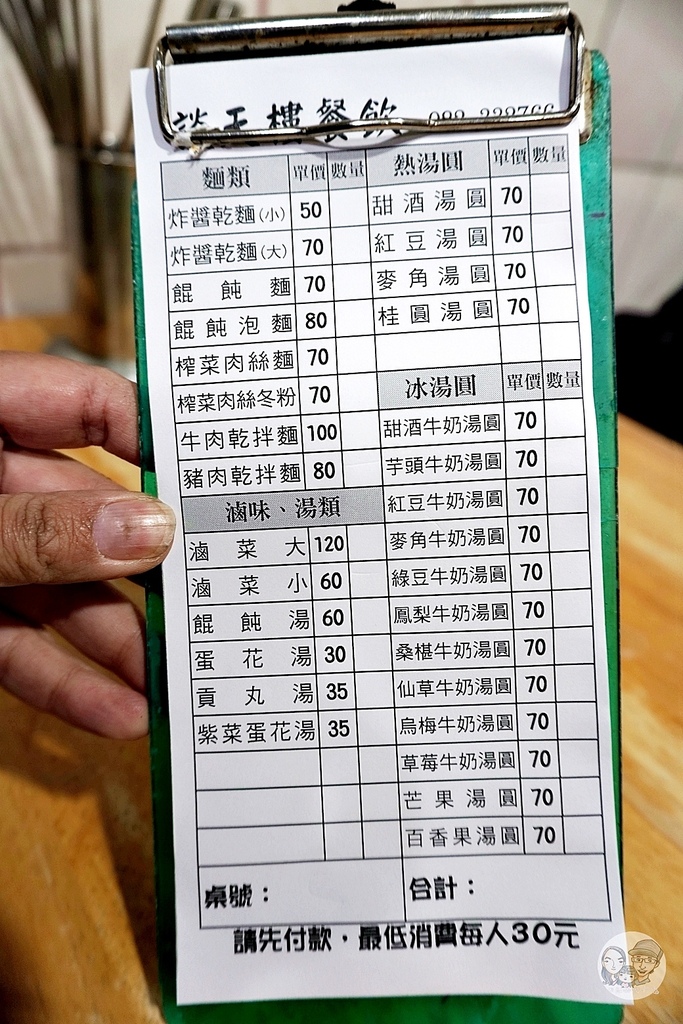 談天樓餐飲
麵類 單價 數量
炸醬乾麵(小) 50
炸醬乾麵(大) 70
餛飩麵 70
餛飩泡麵 80
榨菜肉絲麵 70
榨菜肉絲冬粉 70
牛肉乾拌麵 100
豬肉乾拌麵 80
滷味、湯類
滷菜大 120
滷菜小 60
餛飩湯 60
蛋花湯 30
貢丸湯 35
紫菜蛋花湯 35
熱湯圓 單價 數量
甜酒湯圓 70
紅豆湯圓 70
麥角湯圓 70
桂圓湯圓 70
冰湯圓 單價 數量
甜酒牛奶湯圓 70
芋頭牛奶湯圓 70
紅豆牛奶湯圓 70
麥角牛奶湯圓 70
綠豆牛奶湯圓 70
鳳梨牛奶湯圓 70
桑椹牛奶湯圓 70
仙草牛奶湯圓 70
烏梅牛奶湯圓 70
草莓牛奶湯圓 70
芒果湯圓 70
百香果湯圓 70
桌號：
合計：
請先付款・最低消費每人30元